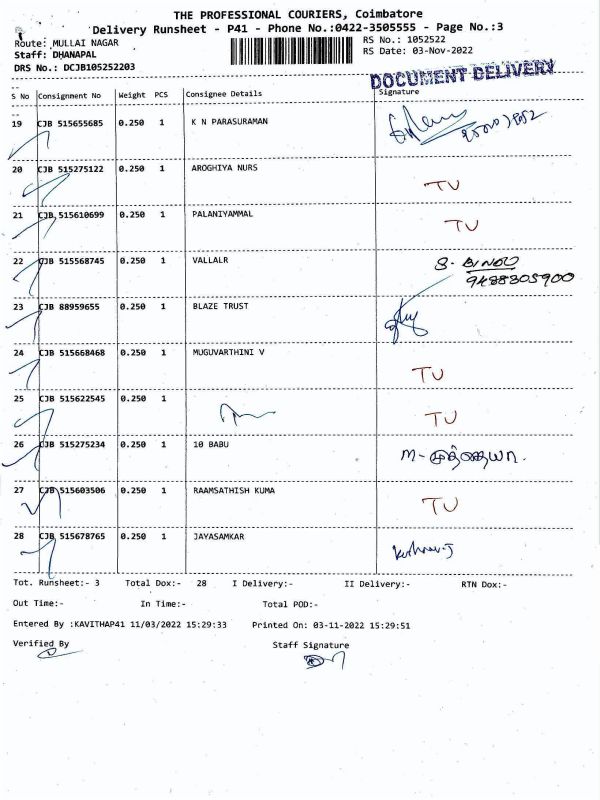 THE PROFESSIONAL COURIERS, Coimbatore
Delivery Runsheet - P41 - Phone No.:0422-3505555 - Page No.:3
Route: MULLAI NAGAR
RS No.: 1052522
Staff: DHANAPAL
RS Date: 03-Nov-2022
DRS No.: DCJB105252203
DOCUMENT DELIVERY
S No Consignment No Weight PCS Consignee Details Signature
19 CJB 515655685 0.250 1 K N PARASURAMAN
20 CJB 515275122 0.250 1 AROGHIYA NURS TU
21 CJB 515610699 0.250 1 PALANIYAMMAL TU
22 CJB 515568745 0.250 1 VALLALR S. BINDU
9488305900
23 CJB 88959655 0.250 1 BLAZE TRUST
24 CJB 515668468 0.250 1 MUGUVARTHINI V TU
25 CJB 515622545 0.250 1 TU
26 CJB 515275234 0.250 1 10 BABU
27 CJB 515603506 0.250 1 RAAMSATHISH KUMA TU
28 CJB 515678765 0.250 1 JAYASAMKAR
Tot. Runsheet:- 3 Total Dox:- 28 I Delivery:- II Delivery:- RTN Dox:-
Out Time:- In Time:- Total POD:-
Entered By :KAVITHAP41 11/03/2022 15:29:33 Printed On: 03-11-2022 15:29:51
Verified By Staff Signature